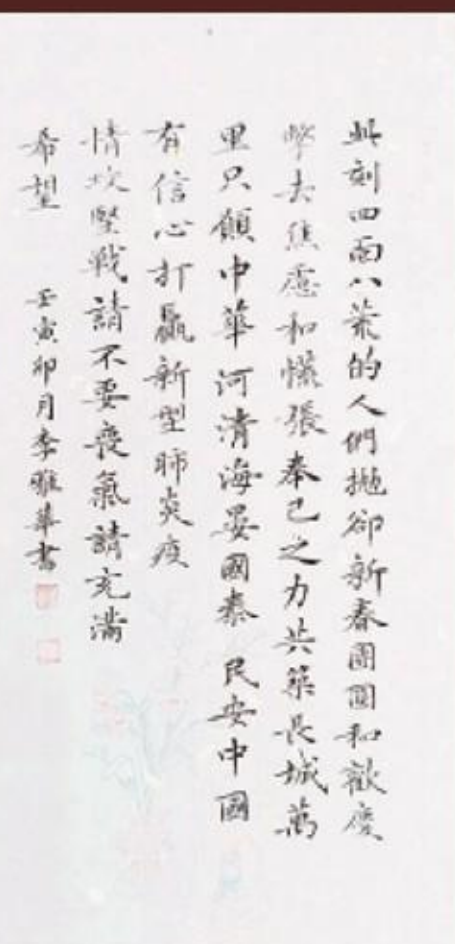 此刻四面八菜的人們拋卻新春團圓和歡度
撇去焦慮和慌張奉己之力共築長城萬
里只願中華河清海晏國泰 民安中國
有信心打贏新型肺炎疫
情攻堅戰請不要喪氣請充滿
希望 壬寅卯月李雅華書